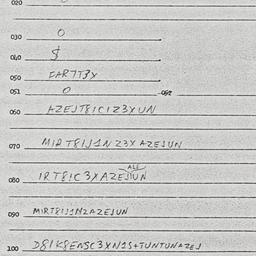 020
030 0
040 $
050 FAR7T3X
051 0 052
060 AZEJT8ICIZ3XUN
070 MIRT8IJ1NZ3XAZEJUN
ALE
080 IRT8IC3XAZEJIUN
090 MIRT8IJ1MZAZEJUN
100 D8IK8ENSC3XN1S+TUNTUNAZEJ